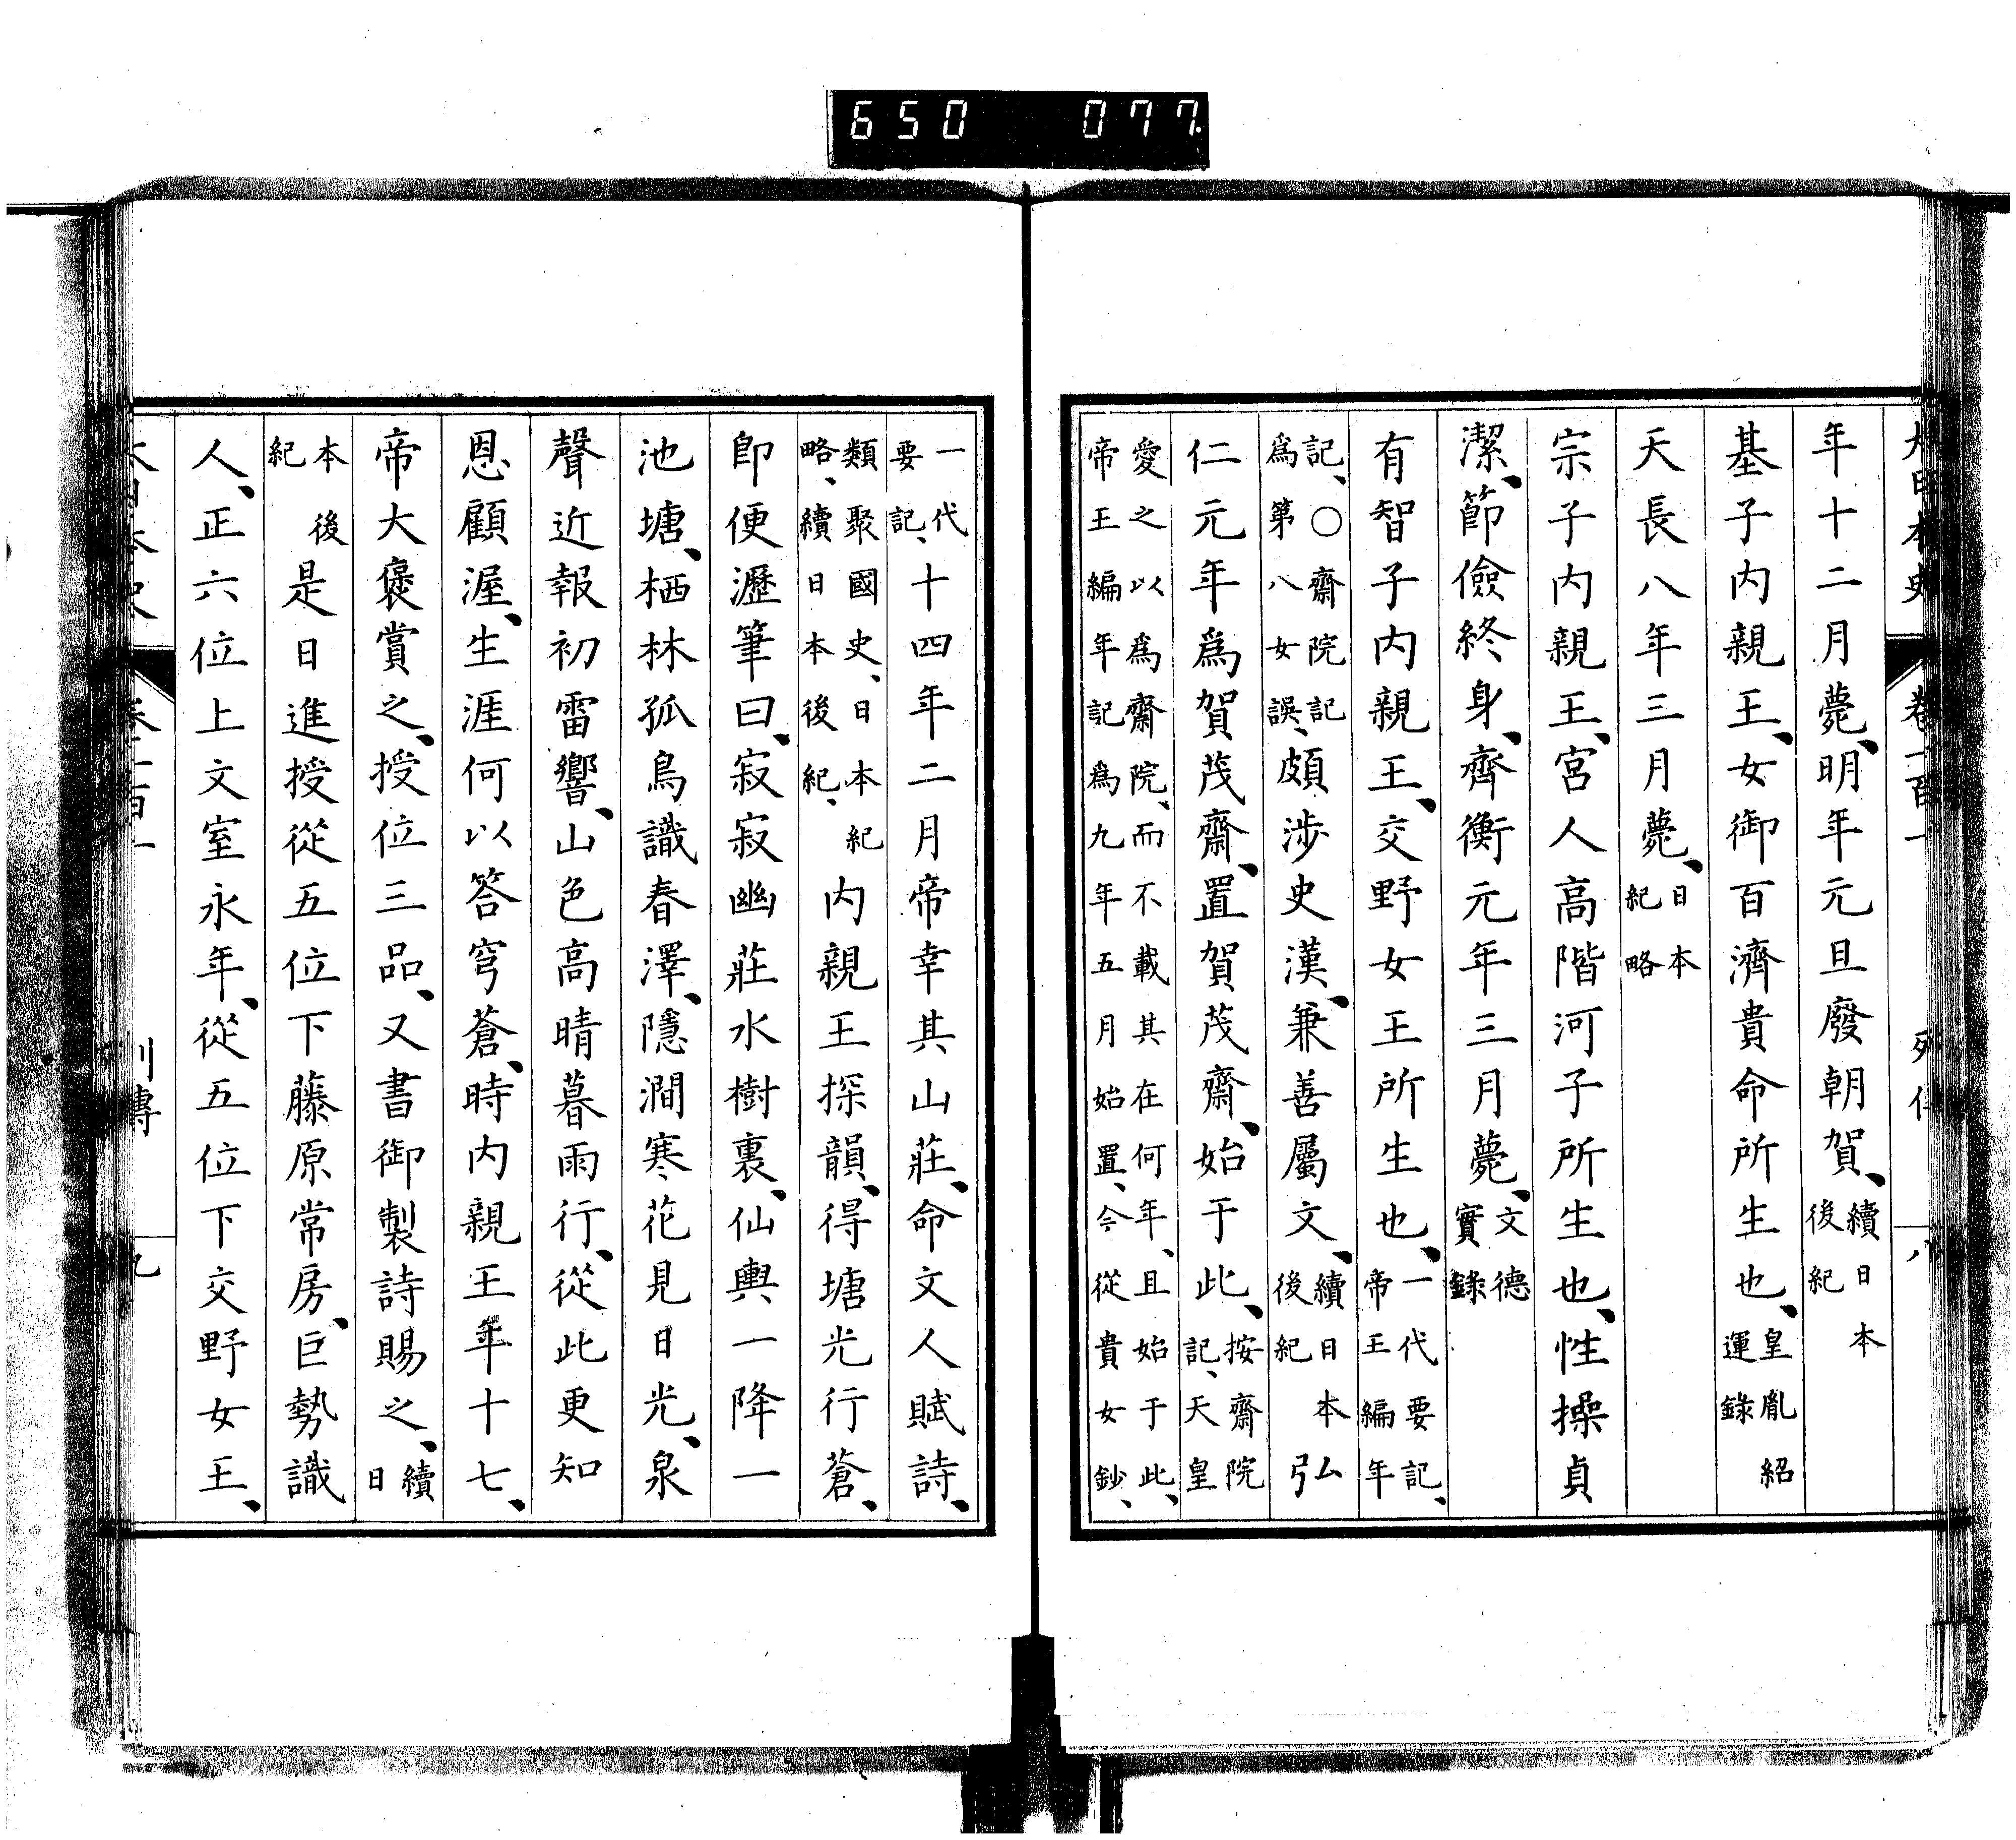 650 077
年十二月薨、明年元旦廢朝賀、續日本後紀
基子内親王、女御百濟貴命所生也、皇胤紹運錄
天長八年三月薨、日本紀略
宗子内親王、宮人高階河子所生也、性操貞
潔、節儉終身、齊衡元年三月薨、文德實錄
有智子内親王、交野女王所生也、一代要記、帝王編年
記、〇齋院記爲第八女誤、頗涉史漢、兼善屬文、續日本後紀弘
仁元年爲賀茂齋、置賀茂齋、始于此、按齋院記、天皇
愛之以爲齋院、而不載其在何年、且始于此、帝王編年記爲九年五月始置、今從貴女鈔、
一代要記、十四年二月帝幸其山莊、命文人賦詩、
類聚國史、日本紀略、續日本後紀、内親王探韻、得塘光行蒼、
卽便瀝筆曰、寂寂幽莊水樹裏、仙輿一降一
池塘、栖林孤鳥識春澤、隱澗寒花見日光、泉
聲近報初雷響、山色高晴暮雨行、從此更知
恩顧渥、生涯何以答穹蒼、時内親王年十七、
帝大褒賞之、授位三品、又書御製詩賜之、續日
本後紀是日進授從五位下藤原常房、巨勢識
人、正六位上文室永年、從五位下交野女王、